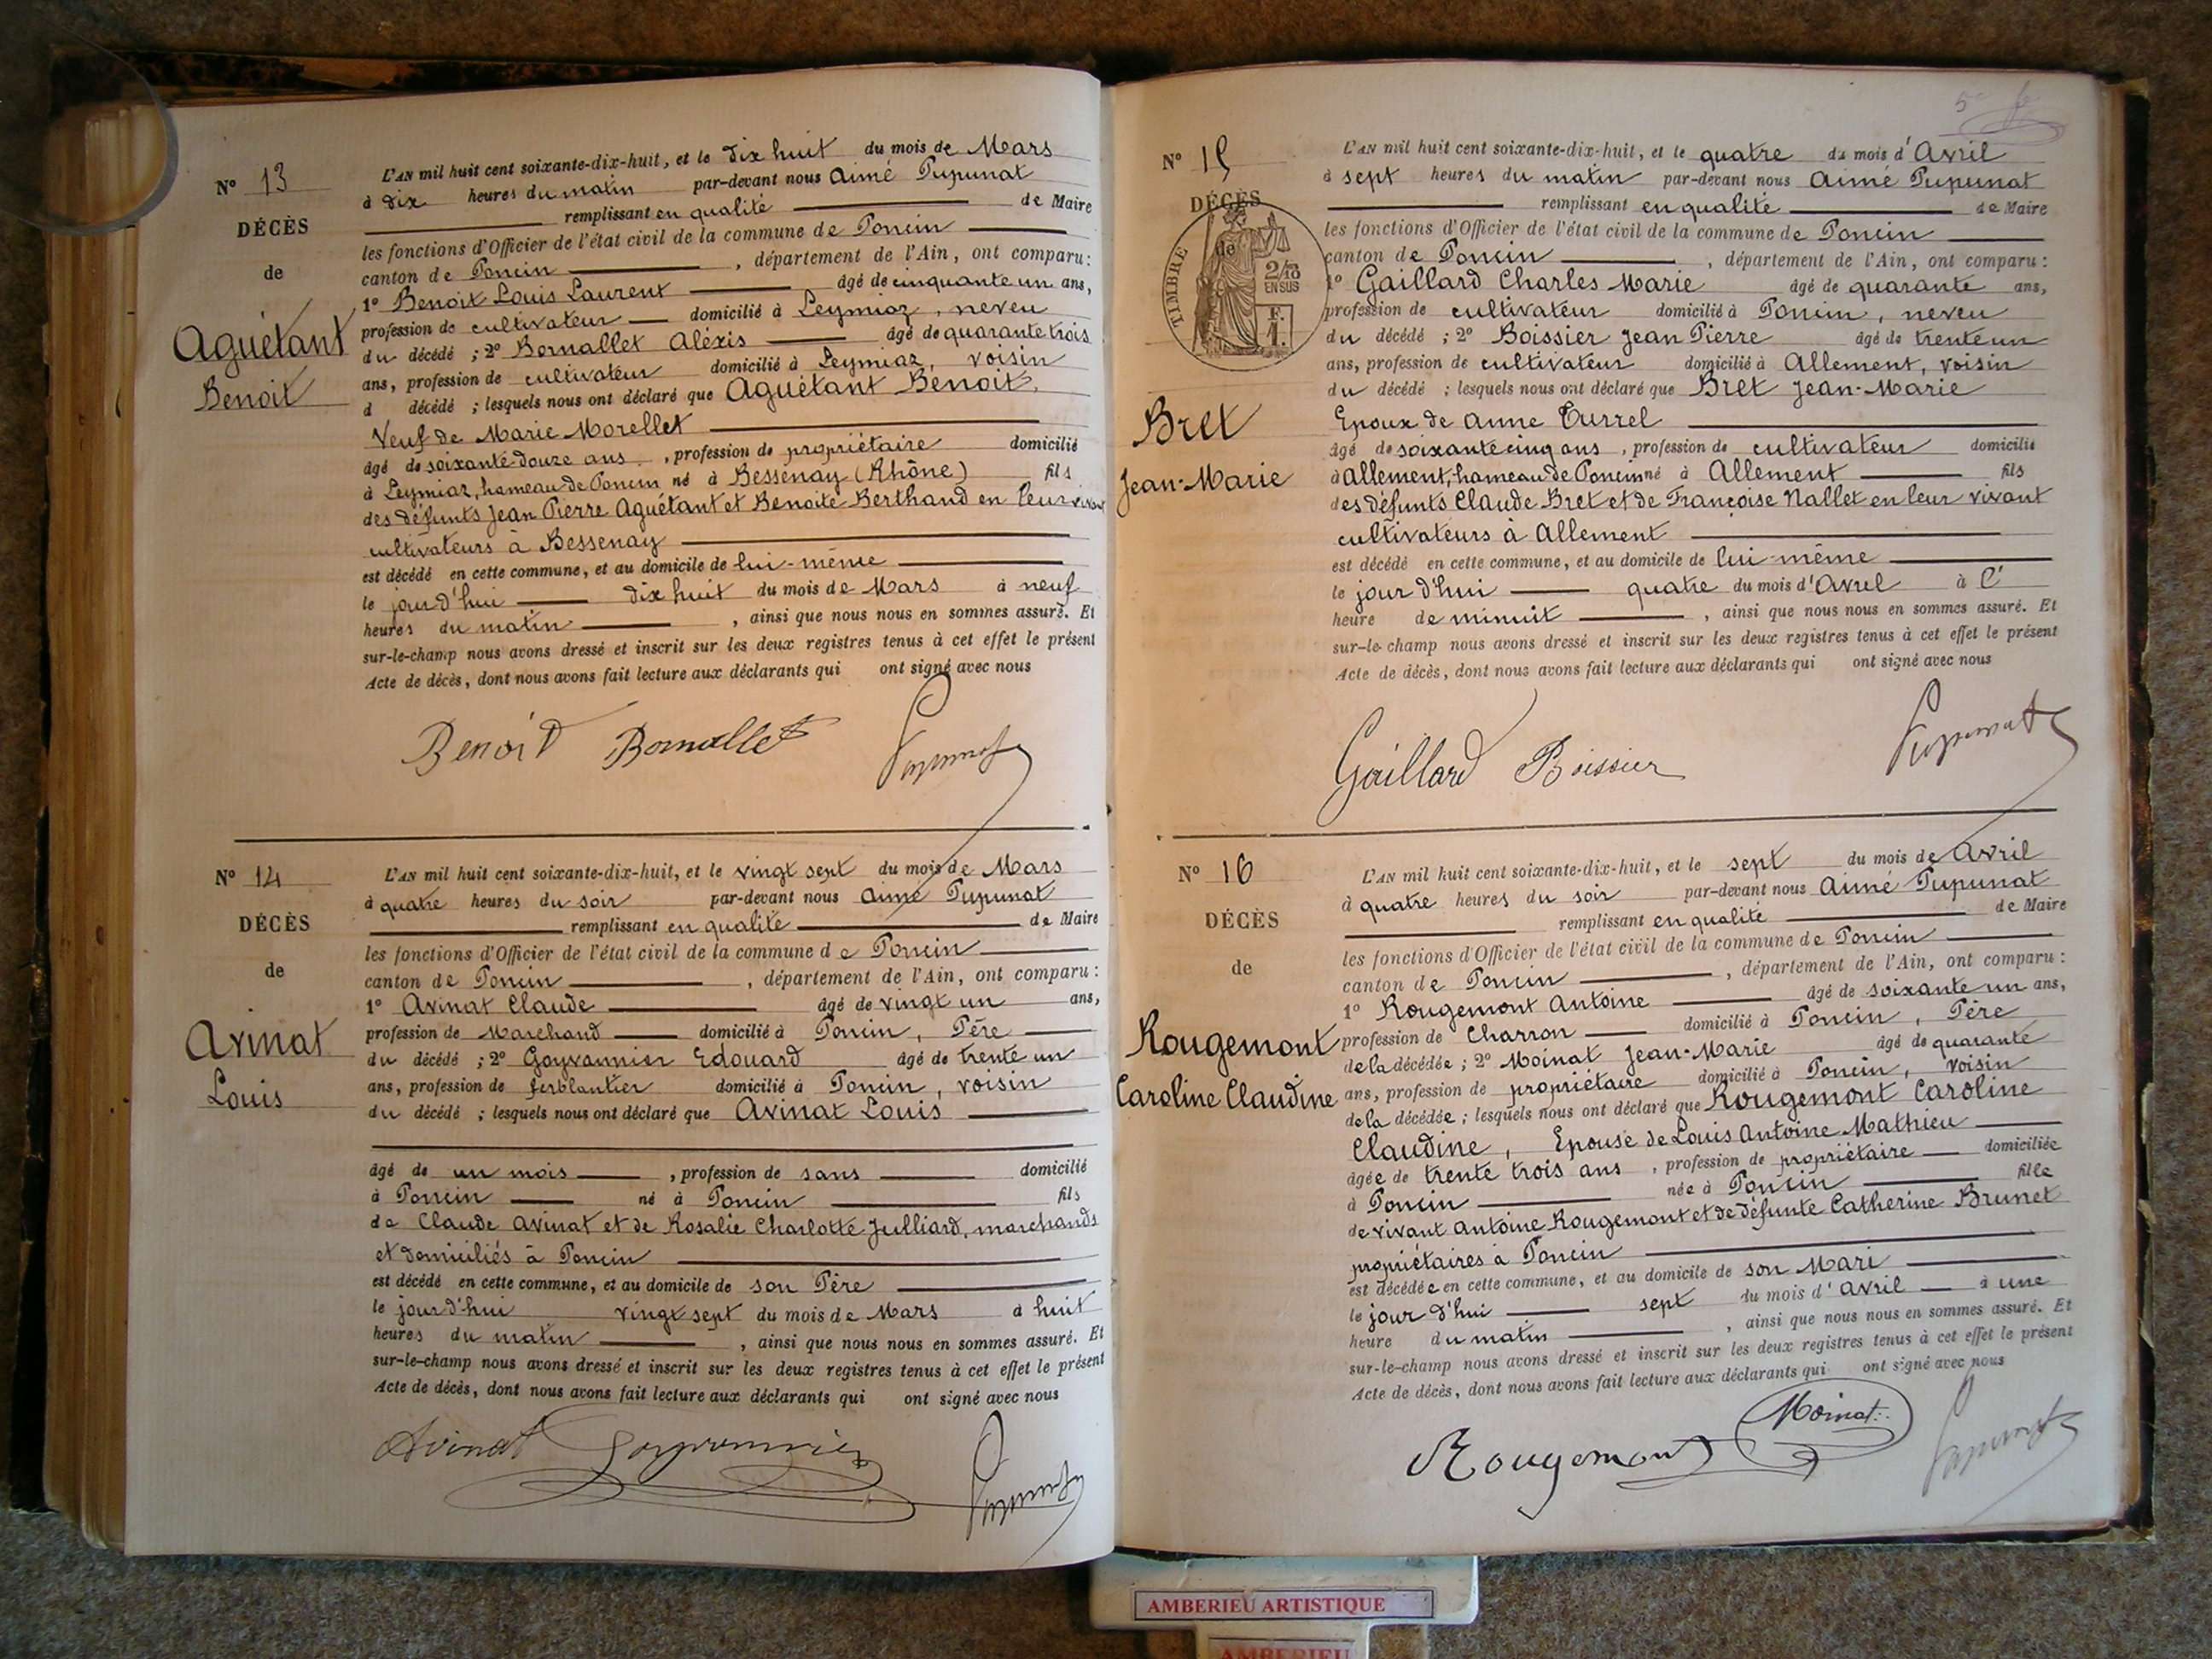 N° 13
DÉCÈS
de
Aguétant
Benoit
L'AN mil huit cent soixante-dix-huit, et le dix huit du mois de Mars
à dix heures du matin par-devant nous Aimé Pupunat
remplissant en qualité de Maire
les fonctions d'Officier de l'état civil de la commune de Poncin
canton de Poncin, département de l'Ain, ont comparu:
1° Benoit Louis Laurent âgé de cinquante un ans,
profession de cultivateur domicilié à Leymiaz, neveu
du décédé ; 2° Bornallet Aléxis âgé de quarante trois
ans, profession de cultivateur domicilié à Leymiaz, voisin
d décédé ; lesquels nous ont déclaré que Aguétant Benoit,
Veuf de Marie Morellet
âgé de soixante-douze ans, profession de propriétaire domicilié
à Leymiaz, hameau de Poncin né à Bessenay (Rhône) fils
des défunts Jean Pierre Aguétant et Benoite Berthand en leur vivant
cultivateurs à Bessenay
est décédé en cette commune, et au domicile de lui-même
le jour d'hui dix huit du mois de Mars à neuf
heures du matin, ainsi que nous nous en sommes assuré. Et
sur-le-champ nous avons dressé et inscrit sur les deux registres tenus à cet effet le présent
Acte de décès, dont nous avons fait lecture aux déclarants qui ont signé avec nous
Benoit Bornallet Pupunat
N° 14
DÉCÈS
de
Avinat
Louis
L'AN mil huit cent soixante-dix-huit, et le vingt sept du mois de Mars
à quatre heures du soir par-devant nous Aimé Pupunat
remplissant en qualité de Maire
les fonctions d'Officier de l'état civil de la commune de Poncin
canton de Poncin, département de l'Ain, ont comparu:
1° Avinat Claude âgé de vingt un ans,
profession de Marchand domicilié à Poncin, Père
du décédé ; 2° Goyvannier Edouard âgé de trente un
ans, profession de ferblantier domicilié à Poncin, voisin
du décédé ; lesquels nous ont déclaré que Avinat Louis
âgé de un mois, profession de sans domicilié
à Poncin né à Poncin fils
de Claude Avinat et de Rosalie Charlotte Julliard, marchands
et domiciliés à Poncin
est décédé en cette commune, et au domicile de son Père
le jour d'hui vingt sept du mois de Mars à huit
heures du matin, ainsi que nous nous en sommes assuré. Et
sur-le-champ nous avons dressé et inscrit sur les deux registres tenus à cet effet le présent
Acte de décès, dont nous avons fait lecture aux déclarants qui ont signé avec nous
Avinat Goyvannier Pupunat
N° 15
DÉCÈS
de
TIMBRE
2/10
EN SUS
F.
1.
Bret
Jean-Marie
L'AN mil huit cent soixante-dix-huit, et le quatre du mois d'Avril
à sept heures du matin par-devant nous Aimé Pupunat
remplissant en qualité de Maire
les fonctions d'Officier de l'état civil de la commune de Poncin
canton de Poncin, département de l'Ain, ont comparu:
1° Gaillard Charles Marie âgé de quarante ans,
profession de cultivateur domicilié à Poncin, neveu
du décédé ; 2° Boissier Jean Pierre âgé de trente un
ans, profession de cultivateur domicilié à Allement, voisin
du décédé ; lesquels nous ont déclaré que Bret Jean-Marie
Epoux de Anne Turrel
âgé de soixante cinq ans, profession de cultivateur domicilié
à Allement, hameau de Poncin né à Allement fils
des défunts Claude Bret et de Françoise Nallet en leur vivant
cultivateurs à Allement
est décédé en cette commune, et au domicile de lui-même
le jour d'hui quatre du mois d'Avril à l'
heure de minuit, ainsi que nous nous en sommes assuré. Et
sur-le-champ nous avons dressé et inscrit sur les deux registres tenus à cet effet le présent
Acte de décès, dont nous avons fait lecture aux déclarants qui ont signé avec nous
Gaillard Boissier Pupunat
N° 16
DÉCÈS
de
Rougemont
Caroline Claudine
L'AN mil huit cent soixante-dix-huit, et le sept du mois de Avril
à quatre heures du soir par-devant nous Aimé Pupunat
remplissant en qualité de Maire
les fonctions d'Officier de l'état civil de la commune de Poncin
canton de Poncin, département de l'Ain, ont comparu:
1° Rougemont Antoine âgé de soixante un ans,
profession de Charron domicilié à Poncin, Père
de la décédée ; 2° Moinat Jean-Marie âgé de quarante
ans, profession de propriétaire domicilié à Poncin, voisin
de la décédée ; lesquels nous ont déclaré que Rougemont Caroline
Claudine, Epouse de Louis Antoine Mathieu
âgée de trente trois ans, profession de propriétaire domiciliée
à Poncin née à Poncin fille
de vivant Antoine Rougemont et de défunte Catherine Brunet
propriétaires à Poncin
est décédée en cette commune, et au domicile de son Mari
le jour d'hui sept du mois d'Avril à une
heure du matin, ainsi que nous nous en sommes assuré. Et
sur-le-champ nous avons dressé et inscrit sur les deux registres tenus à cet effet le présent
Acte de décès, dont nous avons fait lecture aux déclarants qui ont signé avec nous
Rougemont Moinat Pupunat
AMBERIEU ARTISTIQUE
AMBERIEU